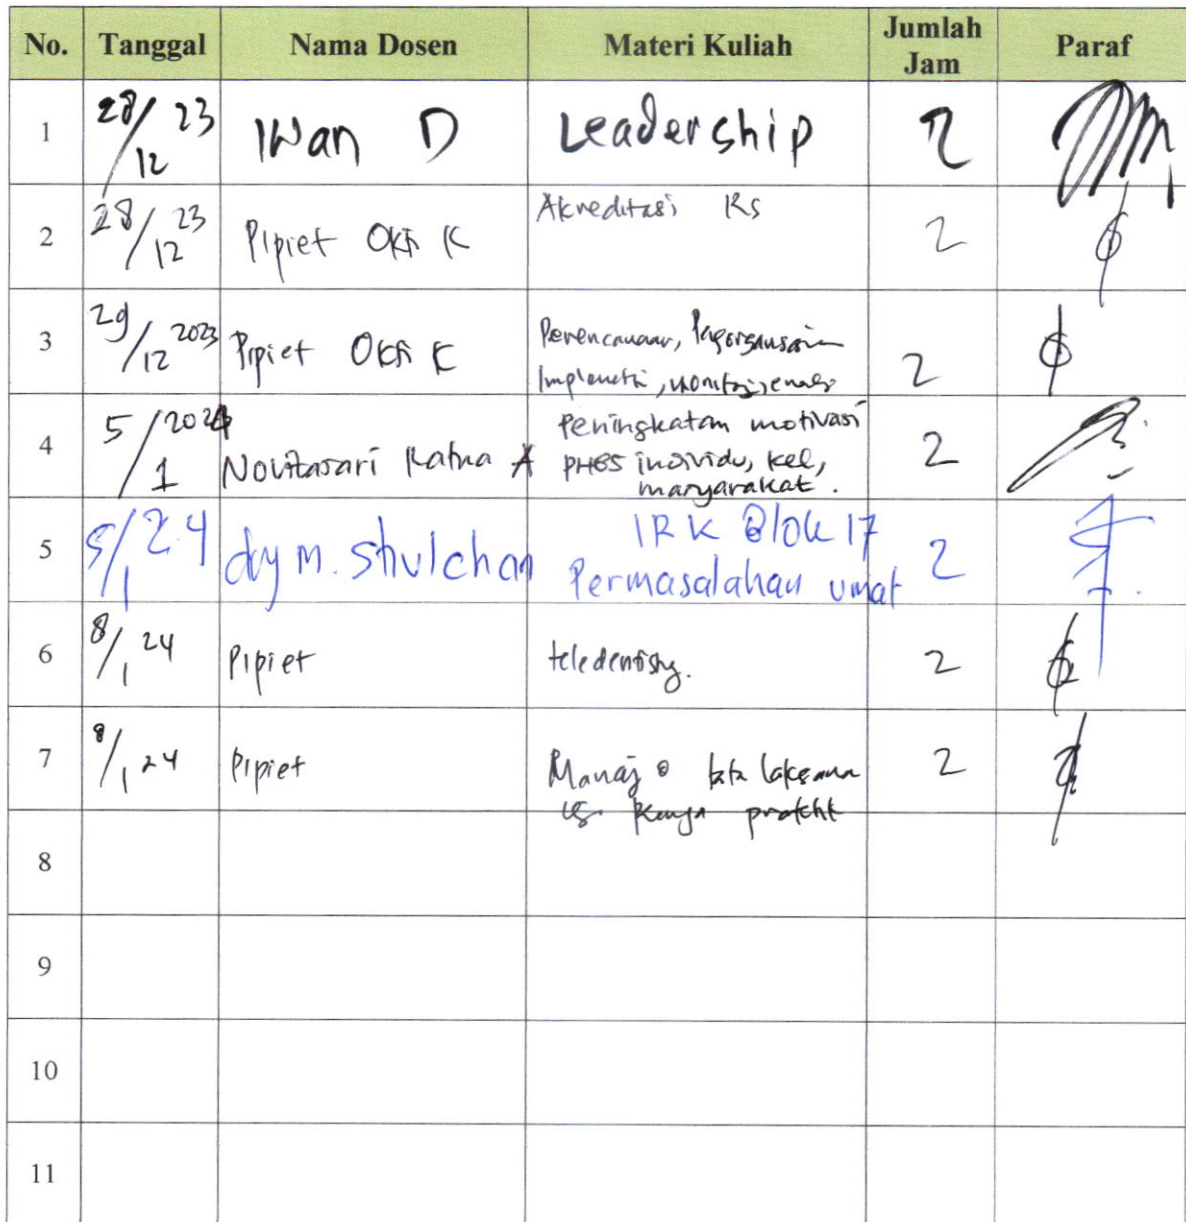 No. Tanggal Nama Dosen Materi Kuliah Jumlah Jam Paraf
1 28/12 23 Iwan D Leadership 2
2 28/12 23 Pipiet Okti K Akreditasi RS 2
3 29/12 2023 Pipiet Okti K Perencanaan,
2
4 5/1 2024 Novitasari Ratna A Peningkatan motivasi
PHBS individu, kel,
masyarakat. 2
5 5/1 24 m. shulchan IRK Blok 17
Permasalahan umat 2
6 8/1 24 Pipiet teledentistry. 2
7 8/1 24 Pipiet Manaj tata laksana
2
8
9
10
11